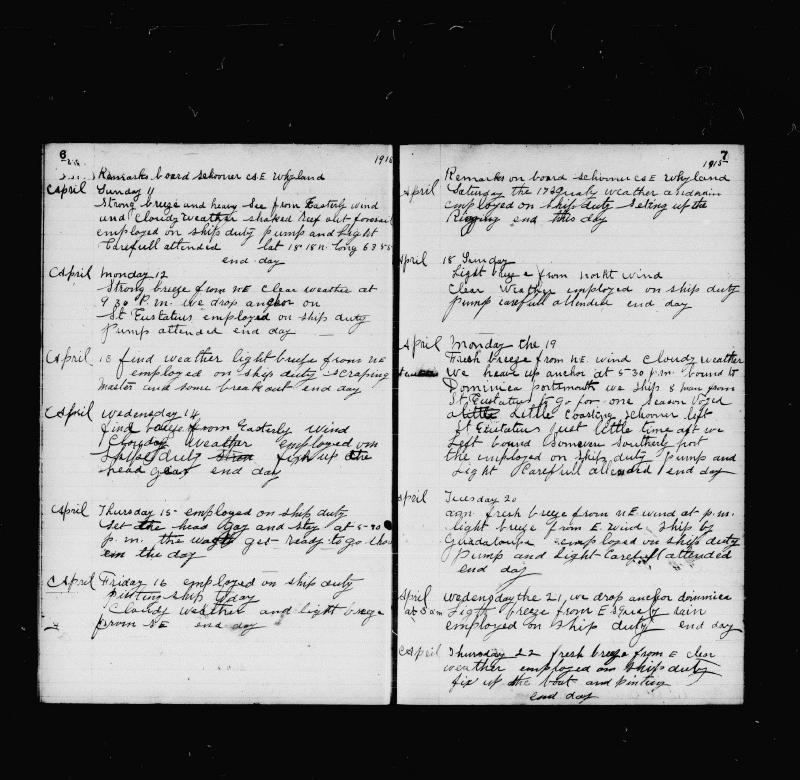 6
1915
Remarks board schooner C&E Whyland
April Sunday 11
Strong breeze and heavy See from Easterly wind
and Cloudy Weather shaked Reef out foresail
employed on ship duty pump and Light
Carefull attended lat 18 18 N. Long 63 55
end day
April monday 12
Strong breeze from NE Clear weather at
9 30 P.m. we drop anchor on
St Eustatius employed on ship duty
pump attended end day
April 13 find weather light breeze from NE
employed on ship duty scraping
master and some breakout end day
April wedensday 14
find breeze from Easterly Wind
Clouday weather employed om
duty fixn up the
head gear end day
April Thursday 15 employed on ship duty
set the head Gay and stay at 5-30
p.m. the get ready to go
em the day
April Friday 16 employed on ship duty
pinting ship today
Cloudy weather and light breeze
from NE end day
7
1915
Remarks on board schooner C&E Whyland
April Saturday the 17 Squaly weather and rain
employed on ship duty Seting up the
Rigging end this day
April 18 Sunday
Light breeze from north wind
Clear Weather employed on ship duty
pump carefull attended end day
April Monday the 19
Fresh breeze from NE. wind cloudy weather
We heave up anchor at 5-30 p.m. bound to
Dominica portsmouth we ship 8 man from
St Eustatius to go for one season Voged
a little Little Coasting schooner left
St Eustatius just little time aft we
Left bound Southerly port
the employed on ship duty pump and
Light Carefull attended end day
April Tuesday 20
agn fresh breeze from NE wind at p.m.
light breeze from E. wind ship by
Guadaloupe employed on ship duty
pump and Light Carefull attended
end day
April wedensday the 21, we drop anchor dominica
at 5 am Ligth breeze from E squaly rain
employed on ship duty end day
April Thursday 22 fresh breeze from E clear
weather employed on ship duty
fix up the boat and pinting
end day